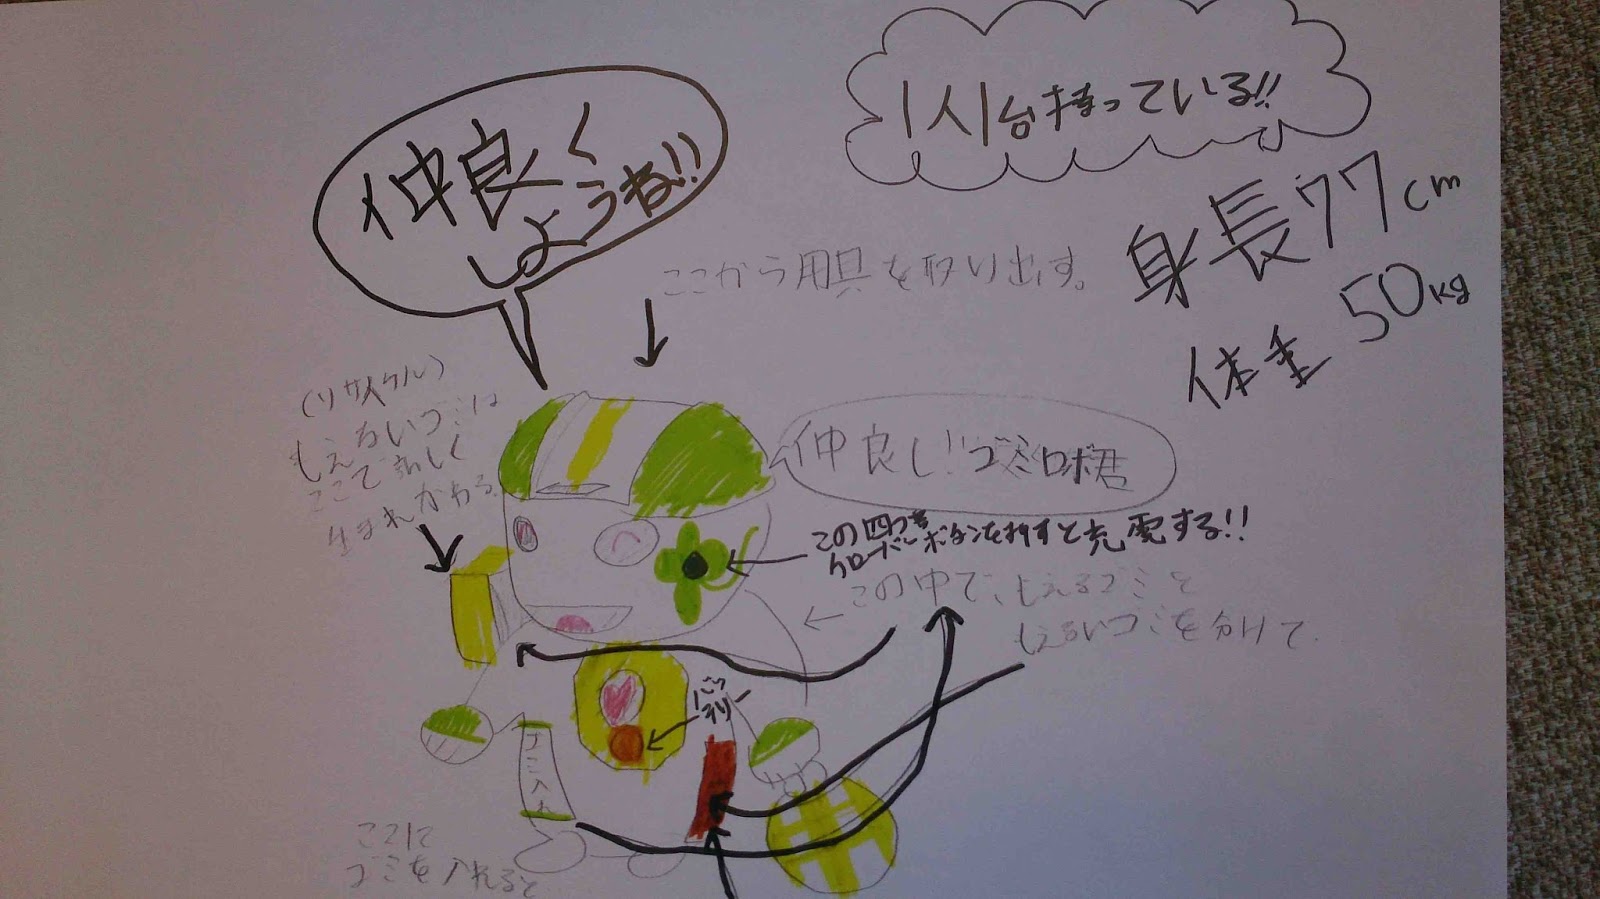 1人1台持っている!!
仲良く
しようね!!
身長77cm
体重50kg
ここから用具を取り出す。
(リサイクル)
もえないゴミは
ここで新しく
生まれかわる。
仲良し!ゴミロボ君
この四つ葉
クローバーボタンを押すと充電する!!
この中で、もえるゴミと
もえないゴミを分けて
ゴミ入れ
ここに
ゴミを入れると